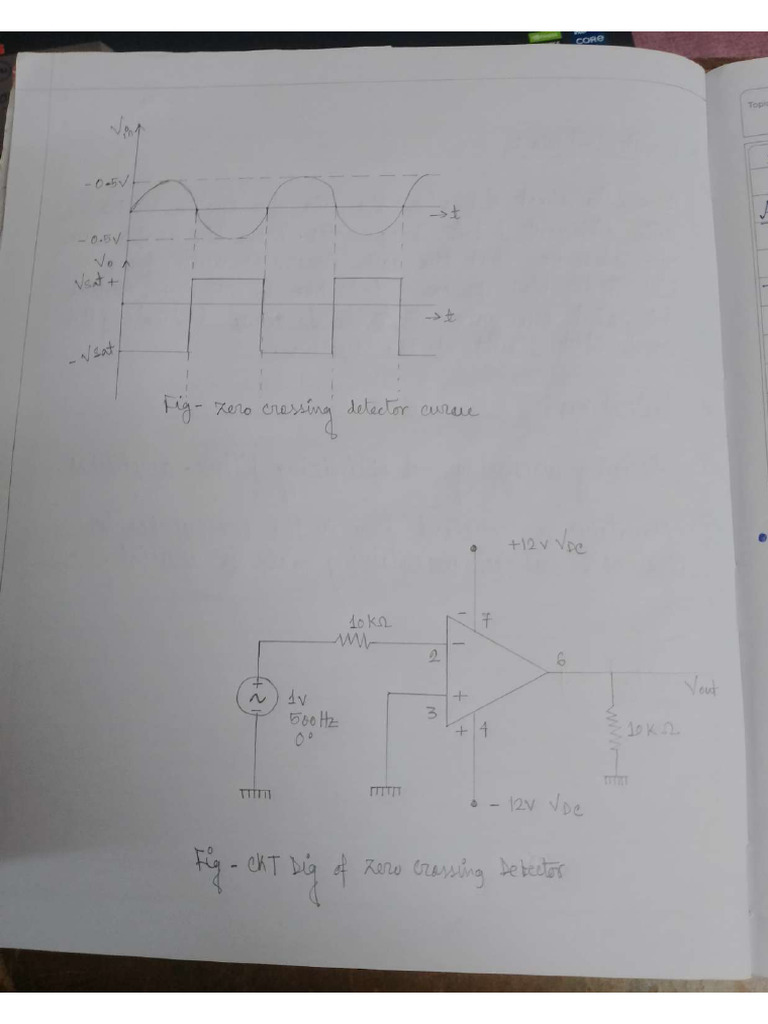 CORE
Topic
Vin
-0.5V
→t
-0.5V
Vo
Vsat+
→t
-Vsat
Fig- zero crossing detector curve
+12V VDC
10KΩ
- 7
2 -
6
Vout
+
1V
500Hz
0°
3 +
+ 4
10KΩ
- 12V VDC
Fig - CKT Dig of zero crossing Detector